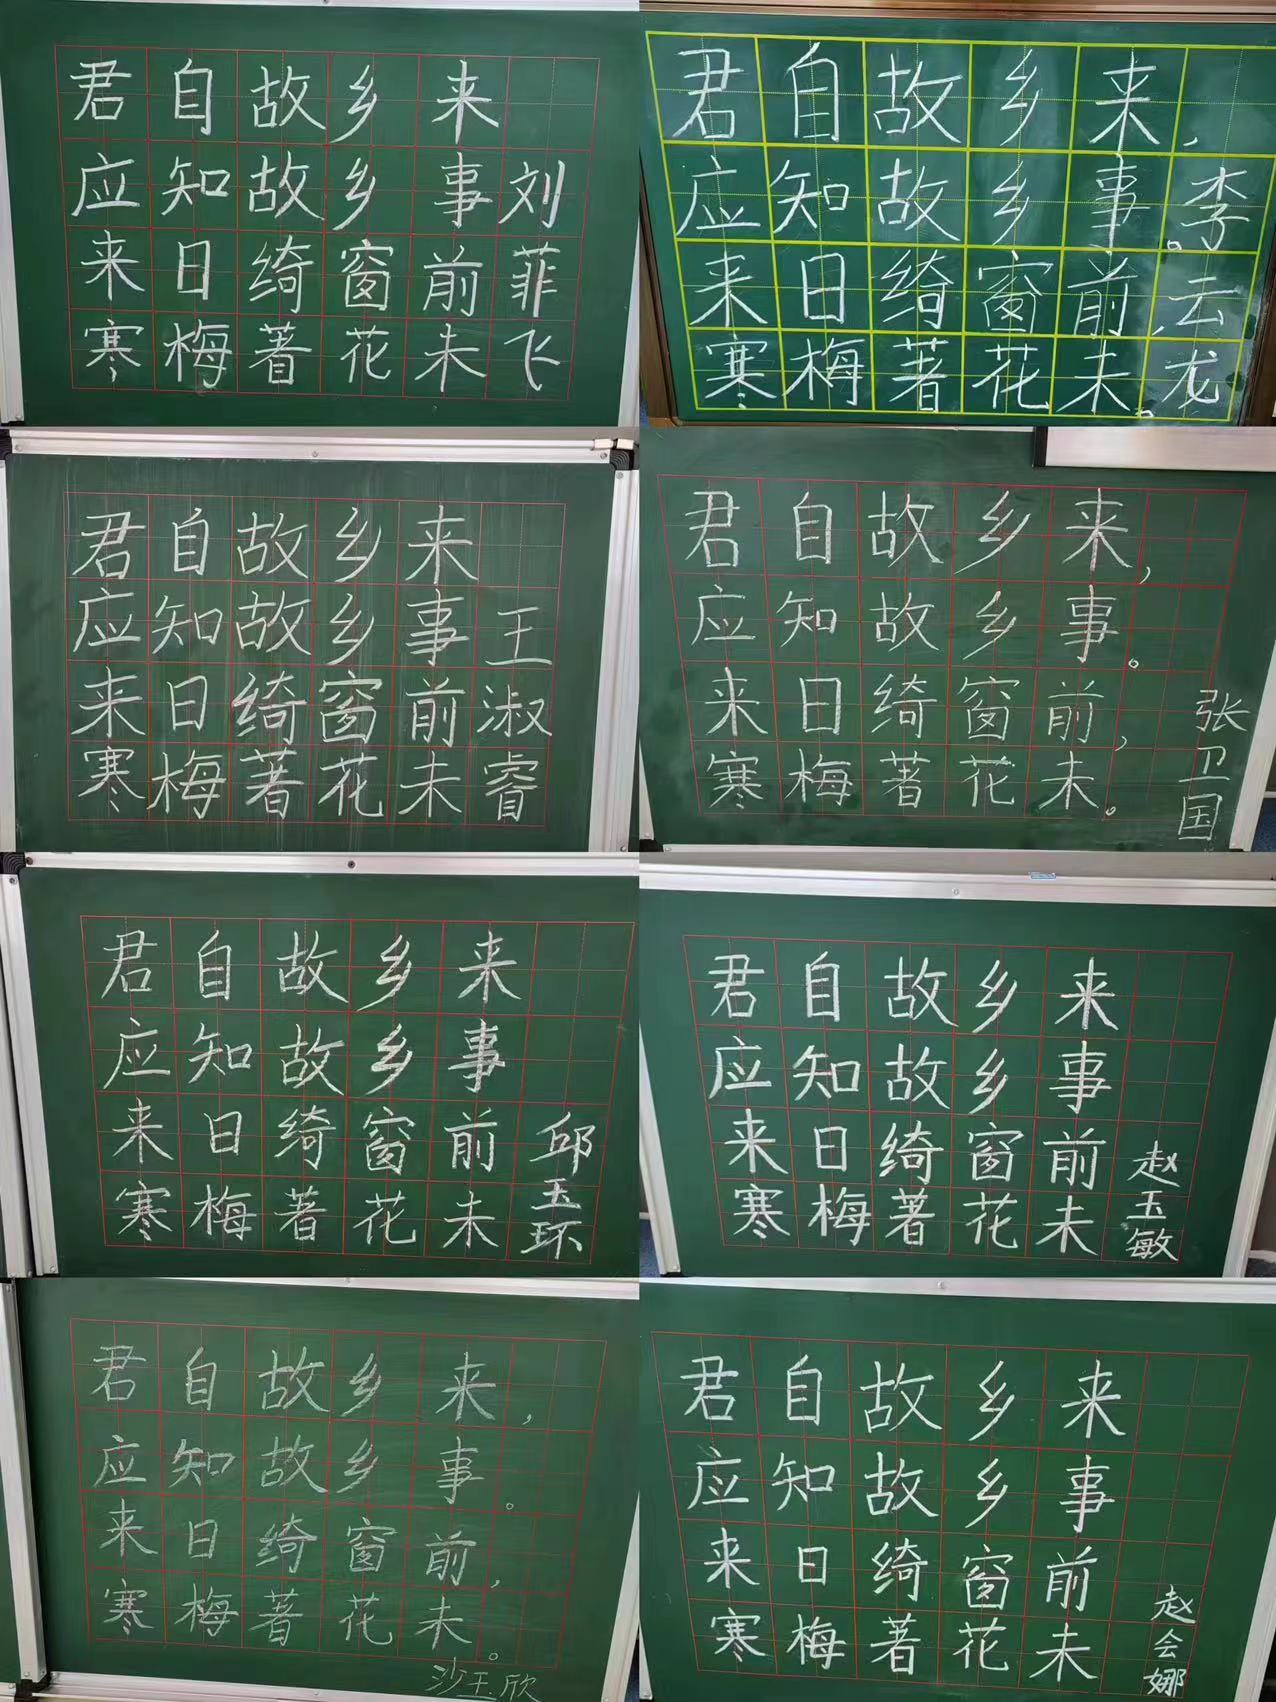 君自故乡来
应知故乡事
来日绮窗前
寒梅著花未
刘菲飞
君自故乡来，
应知故乡事。
来日绮窗前，
寒梅著花未。
李云龙
君自故乡来
应知故乡事
来日绮窗前
寒梅著花未
王淑睿
君自故乡来，
应知故乡事。
来日绮窗前，
寒梅著花未。
张卫国
君自故乡来
应知故乡事
来日绮窗前
寒梅著花未
邱玉环
君自故乡来
应知故乡事
来日绮窗前
寒梅著花未
赵玉敏
君自故乡来，
应知故乡事。
来日绮窗前，
寒梅著花未。
沙玉欣
君自故乡来
应知故乡事
来日绮窗前
寒梅著花未
赵会娜